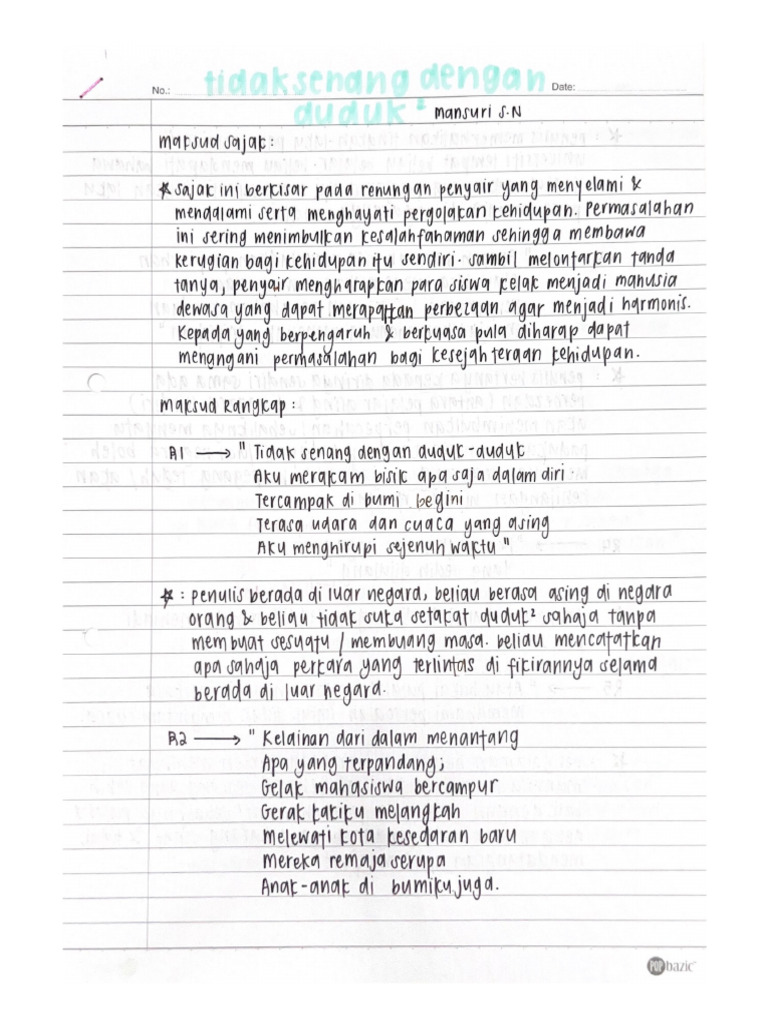 No.: tidak senang dengan Date:
duduk² mansuri S.N
maksud sajak:
* sajak ini berkisar pada renungan penyair yang menyelami &
mendalami serta menghayati pergolakan kehidupan. Permasalahan
ini sering menimbulkan kesalahfahaman sehingga membawa
kerugian bagi kehidupan itu sendiri. sambil melontarkan tanda
tanya, penyair mengharapkan para siswa kelak menjadi manusia
dewasa yang dapat merapatkan perbezaan agar menjadi harmonis.
Kepada yang berpengaruh & berkuasa pula diharap dapat
mengngani permasalahan bagi kesejahteraan kehidupan.
maksud Rangkap:
R1 → " Tidak senang dengan duduk-duduk
Aku merakam bisik apa saja dalam diri
Tercampak di bumi begini
Terasa udara dan cuaca yang asing
Aku menghirupi sejenuh waktu "
* : penulis berada di luar negara, beliau berasa asing di negara
orang & beliau tidak suka setakat duduk² sahaja tanpa
membuat sesuatu / membuang masa. beliau mencatatkan
apa sahaja perkara yang terlintas di fikirannya selama
berada di luar negara.
R2 → " Kelainan dari dalam menantang
Apa yang terpandang;
Gelak mahasiswa bercampur
Gerak kakiku melangkah
Melewati kota kesedaran baru
Mereka remaja serupa
Anak-anak di bumiku juga.
POP bazic